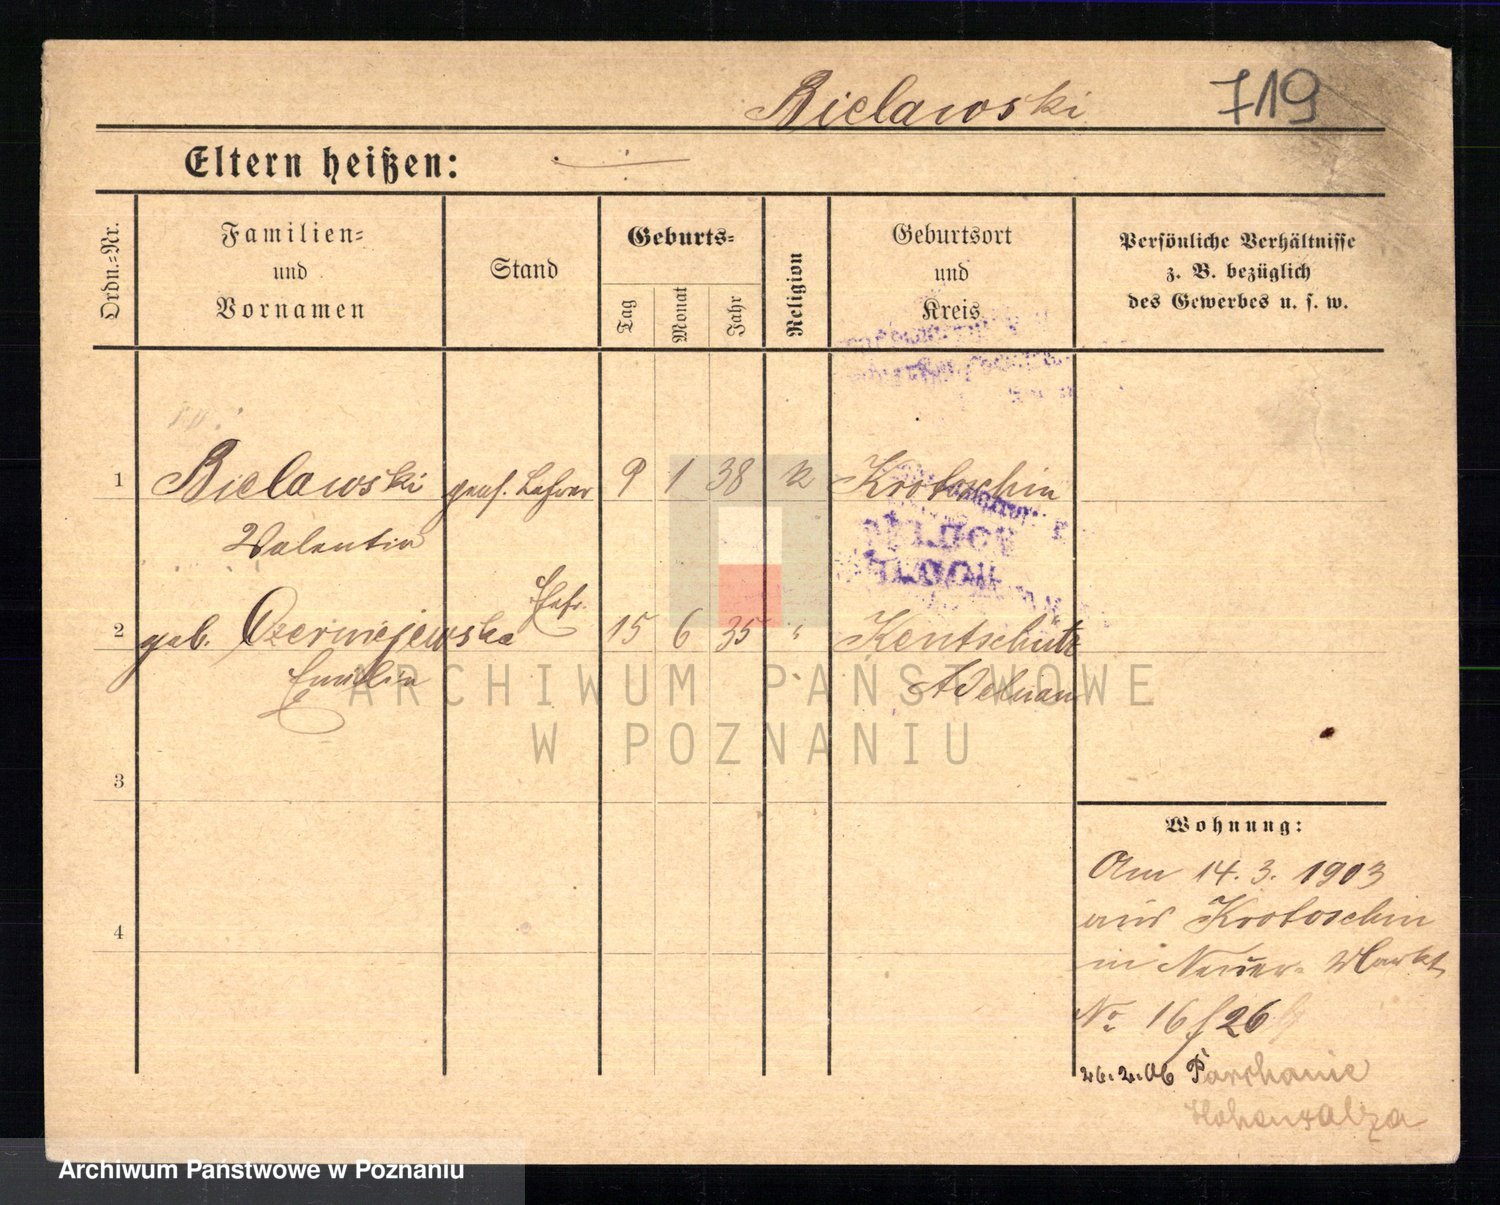 Bielawski 719
Eltern heißen: —
Ordn.=Nr.
Familien=
und
Vornamen
Stand
Geburts=
Tag
Monat
Jahr
Religion
Geburtsort
und
Kreis
Persönliche Verhältnisse
z. B. bezüglich
des Gewerbes u. s. w.
1 Bielawski pens. Lehrer 9 1 38 k Krotoschin
Valentin
Ehefr.
2 geb. Czerniejewska 15 6 35 " Kentschütz
Emilie Adelnau
ARCHIWUM PAŃSTWOWE
W POZNANIU
3
4
Wohnung:
Am 14. 3. 1903
aus Krotoschin
in Neuer Markt
No 16/26
26.2.06 Parchanie
Hohensalza
Archiwum Państwowe w Poznaniu